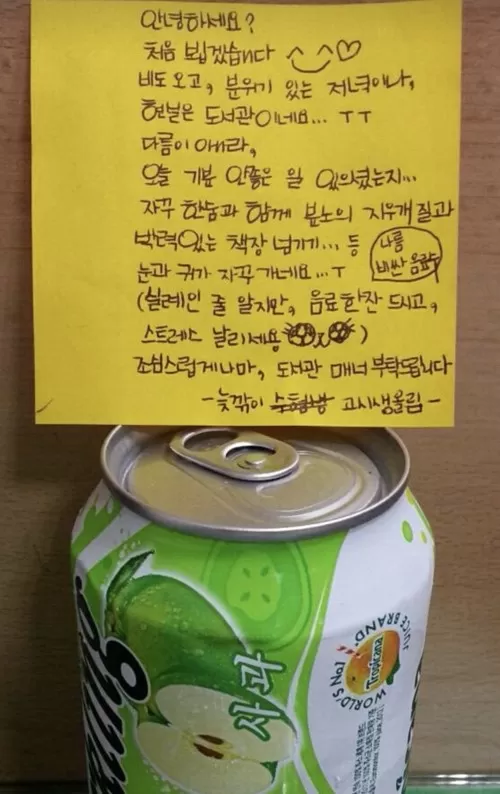 안녕하세요?
처음 뵙겠습니다 ^_^♡
비도 오고, 분위기 있는 저녁이나,
현실은 도서관이네요... ㅜㅜ
다름이 아니라,
오늘 기분 안좋은 일 있으셨는지...
자꾸 한숨과 함께 분노의 지우개 질과
박력있는 책장 넘기기... 등
나름 비싼 음료
눈과 귀가 자꾸 가네요...ㅜ
(실례인 줄 알지만, 음료한잔 드시고,
스트레스 날리세용)
조심스럽게나마, 도서관 매너 부탁드립니다
-늦깎이 수험생 고시생올림-
사과
WORLD'S No1 JUICE BRAND.
Tropicana